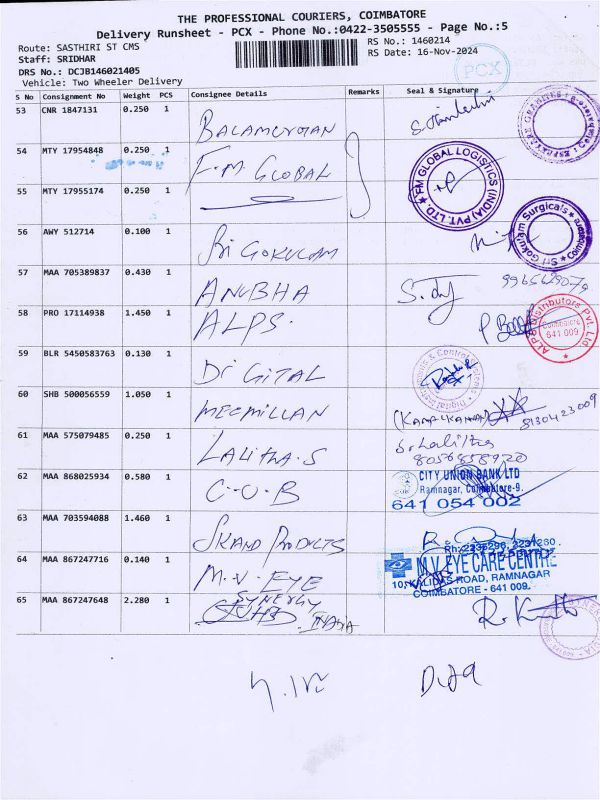 THE PROFESSIONAL COURIERS, COIMBATORE
Delivery Runsheet - PCX - Phone No.:0422-3505555 - Page No.:5
Route: SASTHIRI ST CMS
RS No.: 1460214
Staff: SRIDHAR
RS Date: 16-Nov-2024
DRS No.: DCJB146021405
PCX
Vehicle: Two Wheeler Delivery
S No Consignment No Weight PCS Consignee Details Remarks Seal & Signature
53 CNR 1847131 0.250 1 BALAMURUGAN
54 MTY 17954848 0.250 1 F.M. GLOBAL
FM GLOBAL LOGISTICS (INDIA) PVT. LTD
55 MTY 17955174 0.250 1
56 AWY 512714 0.100 1 Sri GOKULAM
Sri Gokulam Surgicals Coimbatore
57 MAA 705389837 0.430 1 ANUBHA
58 PRO 17114938 1.450 1 ALPS.
ALPS Distributors Pvt. Ltd Coimbatore 641 009
59 BLR 5450583763 0.130 1 DIGITAL
60 SHB 500056559 1.050 1 MECMILLAN
8130423009
61 MAA 575079485 0.250 1 LALITHA.S
S. Lalitha
8056858920
62 MAA 868025934 0.580 1 C.U.B
CITY UNION BANK LTD
Ramnagar, Coimbatore-9.
641 054 002
63 MAA 703594088 1.460 1 SKAND PRODUCTS
64 MAA 867247716 0.140 1 M.V. EYE
M.V. EYE CARE CENTRE
10, KALIDAS ROAD, RAMNAGAR
COIMBATORE - 641 009.
65 MAA 867247648 2.280 1 SYNERGY
INDIA